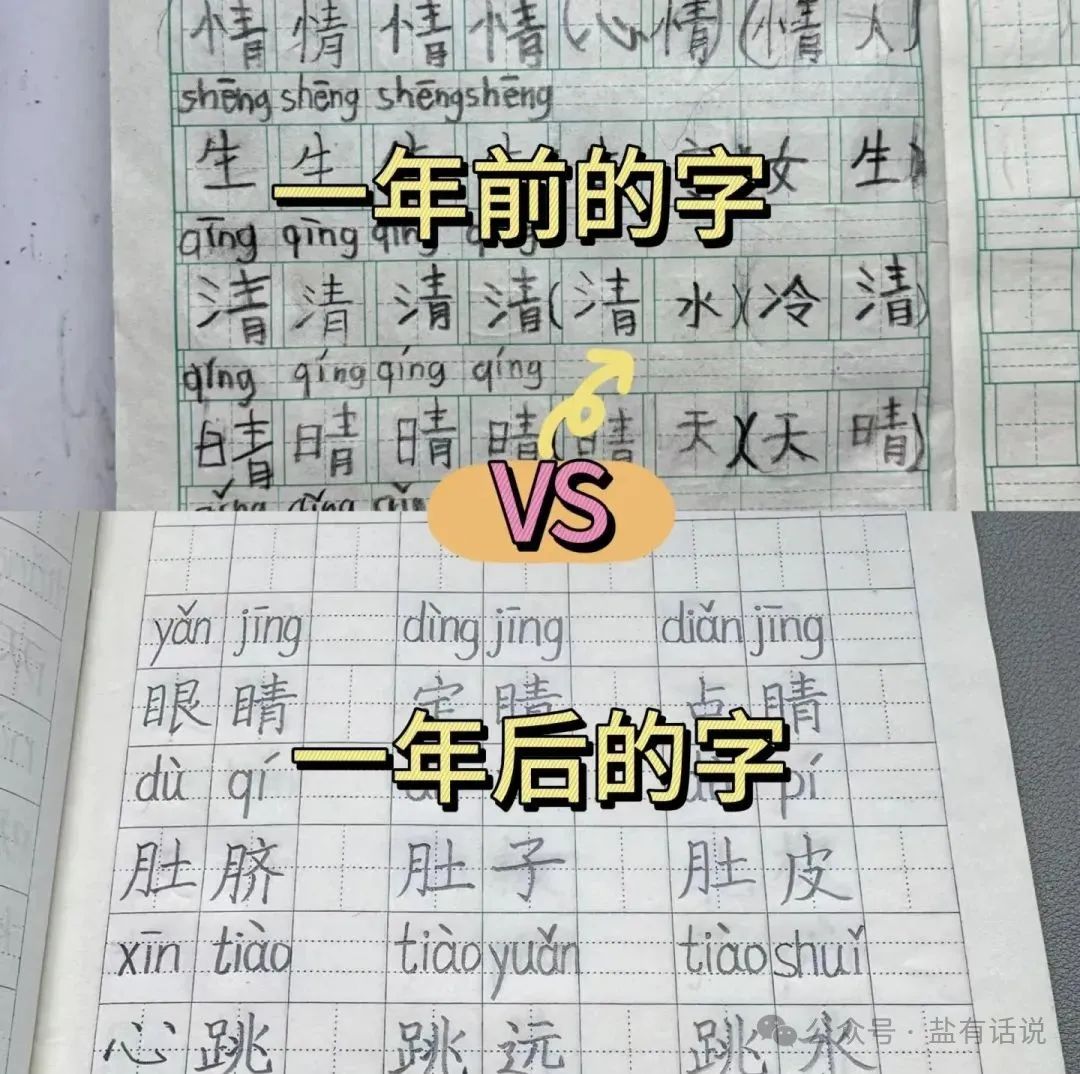 情 情 情 情 (心 情)(情 人)
shēng shēng shēng shēng
生 生 女 生)
一年前的字
qīng qīng qīng
清 清 清 清(清 水)(冷 清)
qíng qíng qíng qíng
晴 晴 晴 晴(晴 天)(天 晴)
VS
yǎn jīng dìng jīng diǎn jīng
眼 睛 定 睛 点 睛
一年后的字
dù qí pí
肚 脐 肚 子 肚 皮
xīn tiào tiào yuǎn tiào shuǐ
心 跳 跳 远 跳 水
公众号·盐有话说